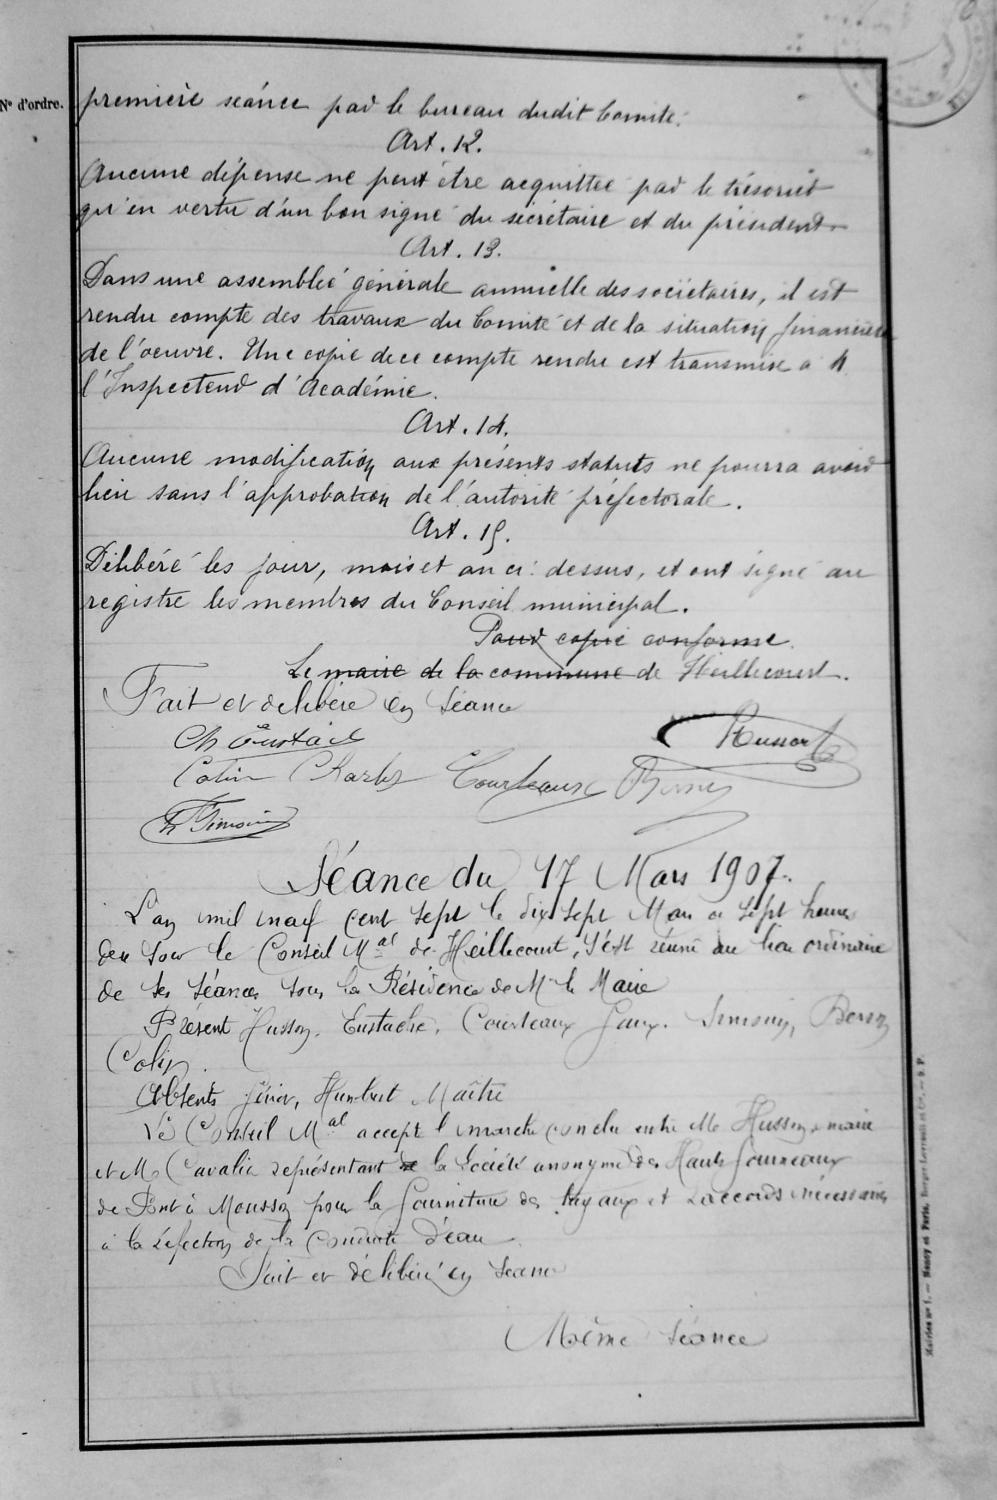 N° d'ordre.
première séance par le bureau dudit Comité.
Art. 12.
Aucune dépense ne peut être acquittée par le trésorier
qu'en vertu d'un bon signé du secrétaire et du président.
Art. 13.
Dans une assemblée générale annuelle des sociétaires, il est
rendu compte des travaux du Comité et de la situation financière
de l'oeuvre. Une copie de ce compte rendu est transmise à M
l'Inspecteur d'Académie.
Art. 14.
Aucune modification aux présents statuts ne pourra avoir
lieu sans l'approbation de l'autorité préfectorale.
Art. 15.
Délibéré les jour, mois et an ci-dessus, et ont signé au
registre les membres du Conseil municipal.
Pour copie conforme.
Le maire de la commune de Heillecourt.
Fait et délibéré en Séance
Ch Eustache
Husson
Colin Charles Courteaux Berson
Séance du 17 Mars 1907.
L'an mil neuf cent sept le dix sept Mars à sept heures
du soir le Conseil Mal de Heillecourt, s'est réuni au lieu ordinaire
de ses séances sous la Présidence de M le Maire
Présent Husson, Eustache, Courteaux Simonin, Berson
Colin.
Absents Humbert Maître
Le Conseil Mal accepte le marché conclu entre M Husson maire
et M Cavalier représentant de la Société anonyme des Hauts fourneaux
de Pont à Mousson pour la fourniture des tuyaux et raccords nécessaires
à la réfection de la conduite d'eau
Fait et délibéré en séance
Même séance